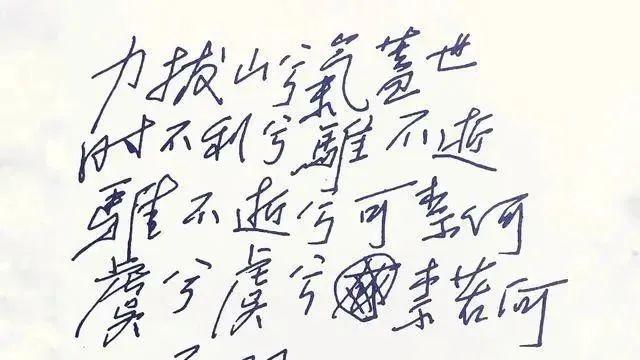 力拔山兮氣蓋世
时不利兮騅不逝
騅不逝兮可柰何
虞兮虞兮柰若何